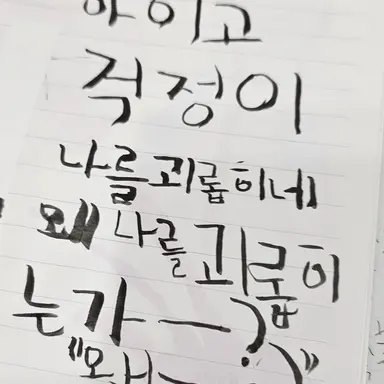 아이고
걱정이
나를괴롭히네
왜 나를괴롭히
는가ㅡ?
"오